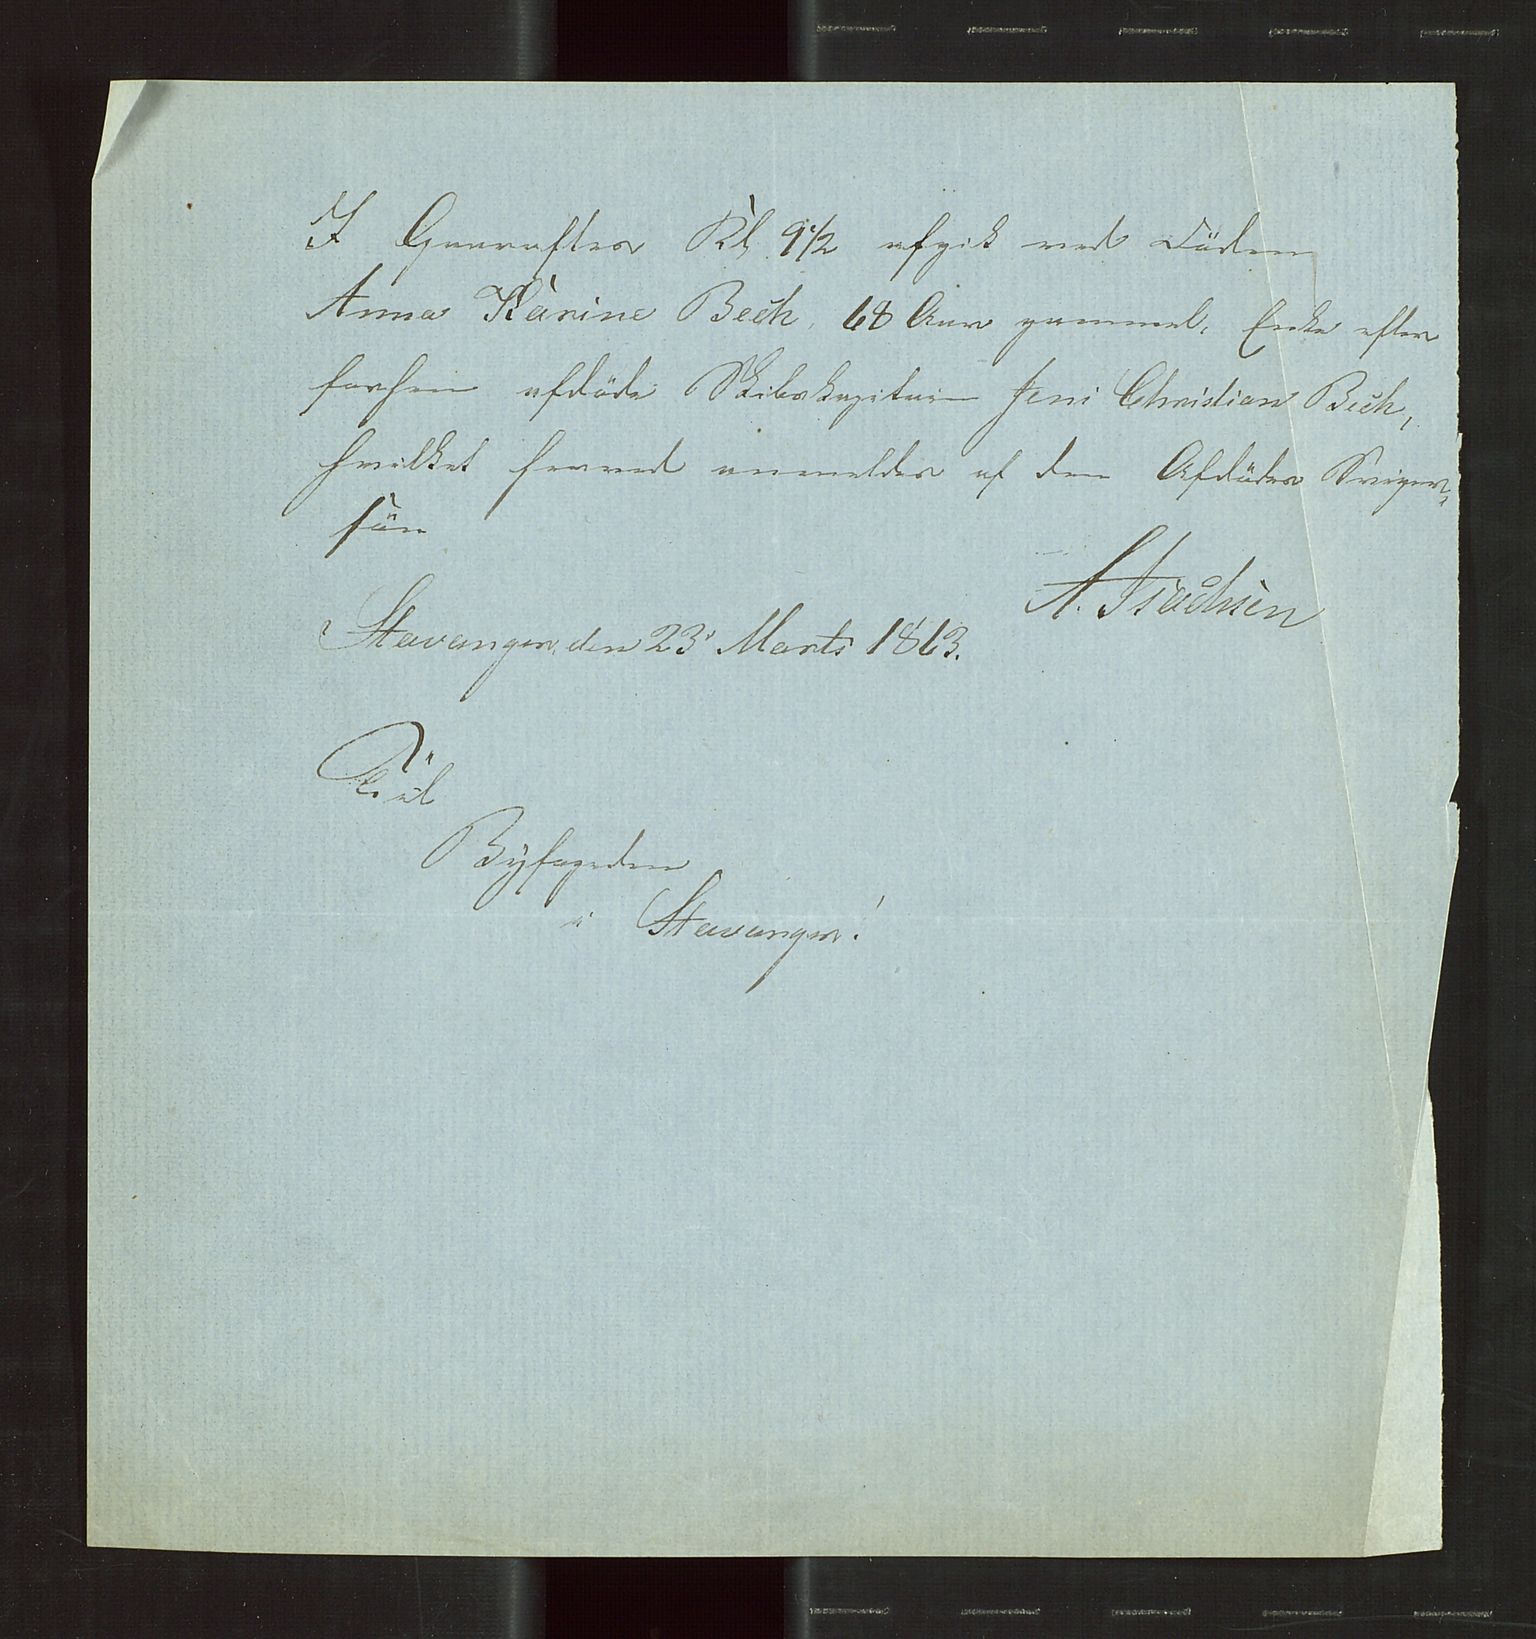 I Gaaraftes Kl. 9 1/2 afgik ved Döden
Anna Karine Bech, 68 Aar gammel, Enke efter
forhen afdöde Skibskapitain Jens Christian Bech,
hvilket herved anmeldes af den Afdödes Sviger-
sön
A. Isachsen
Stavanger, den 23' Marts 1863.
Til
Byfogden
i Stavanger!